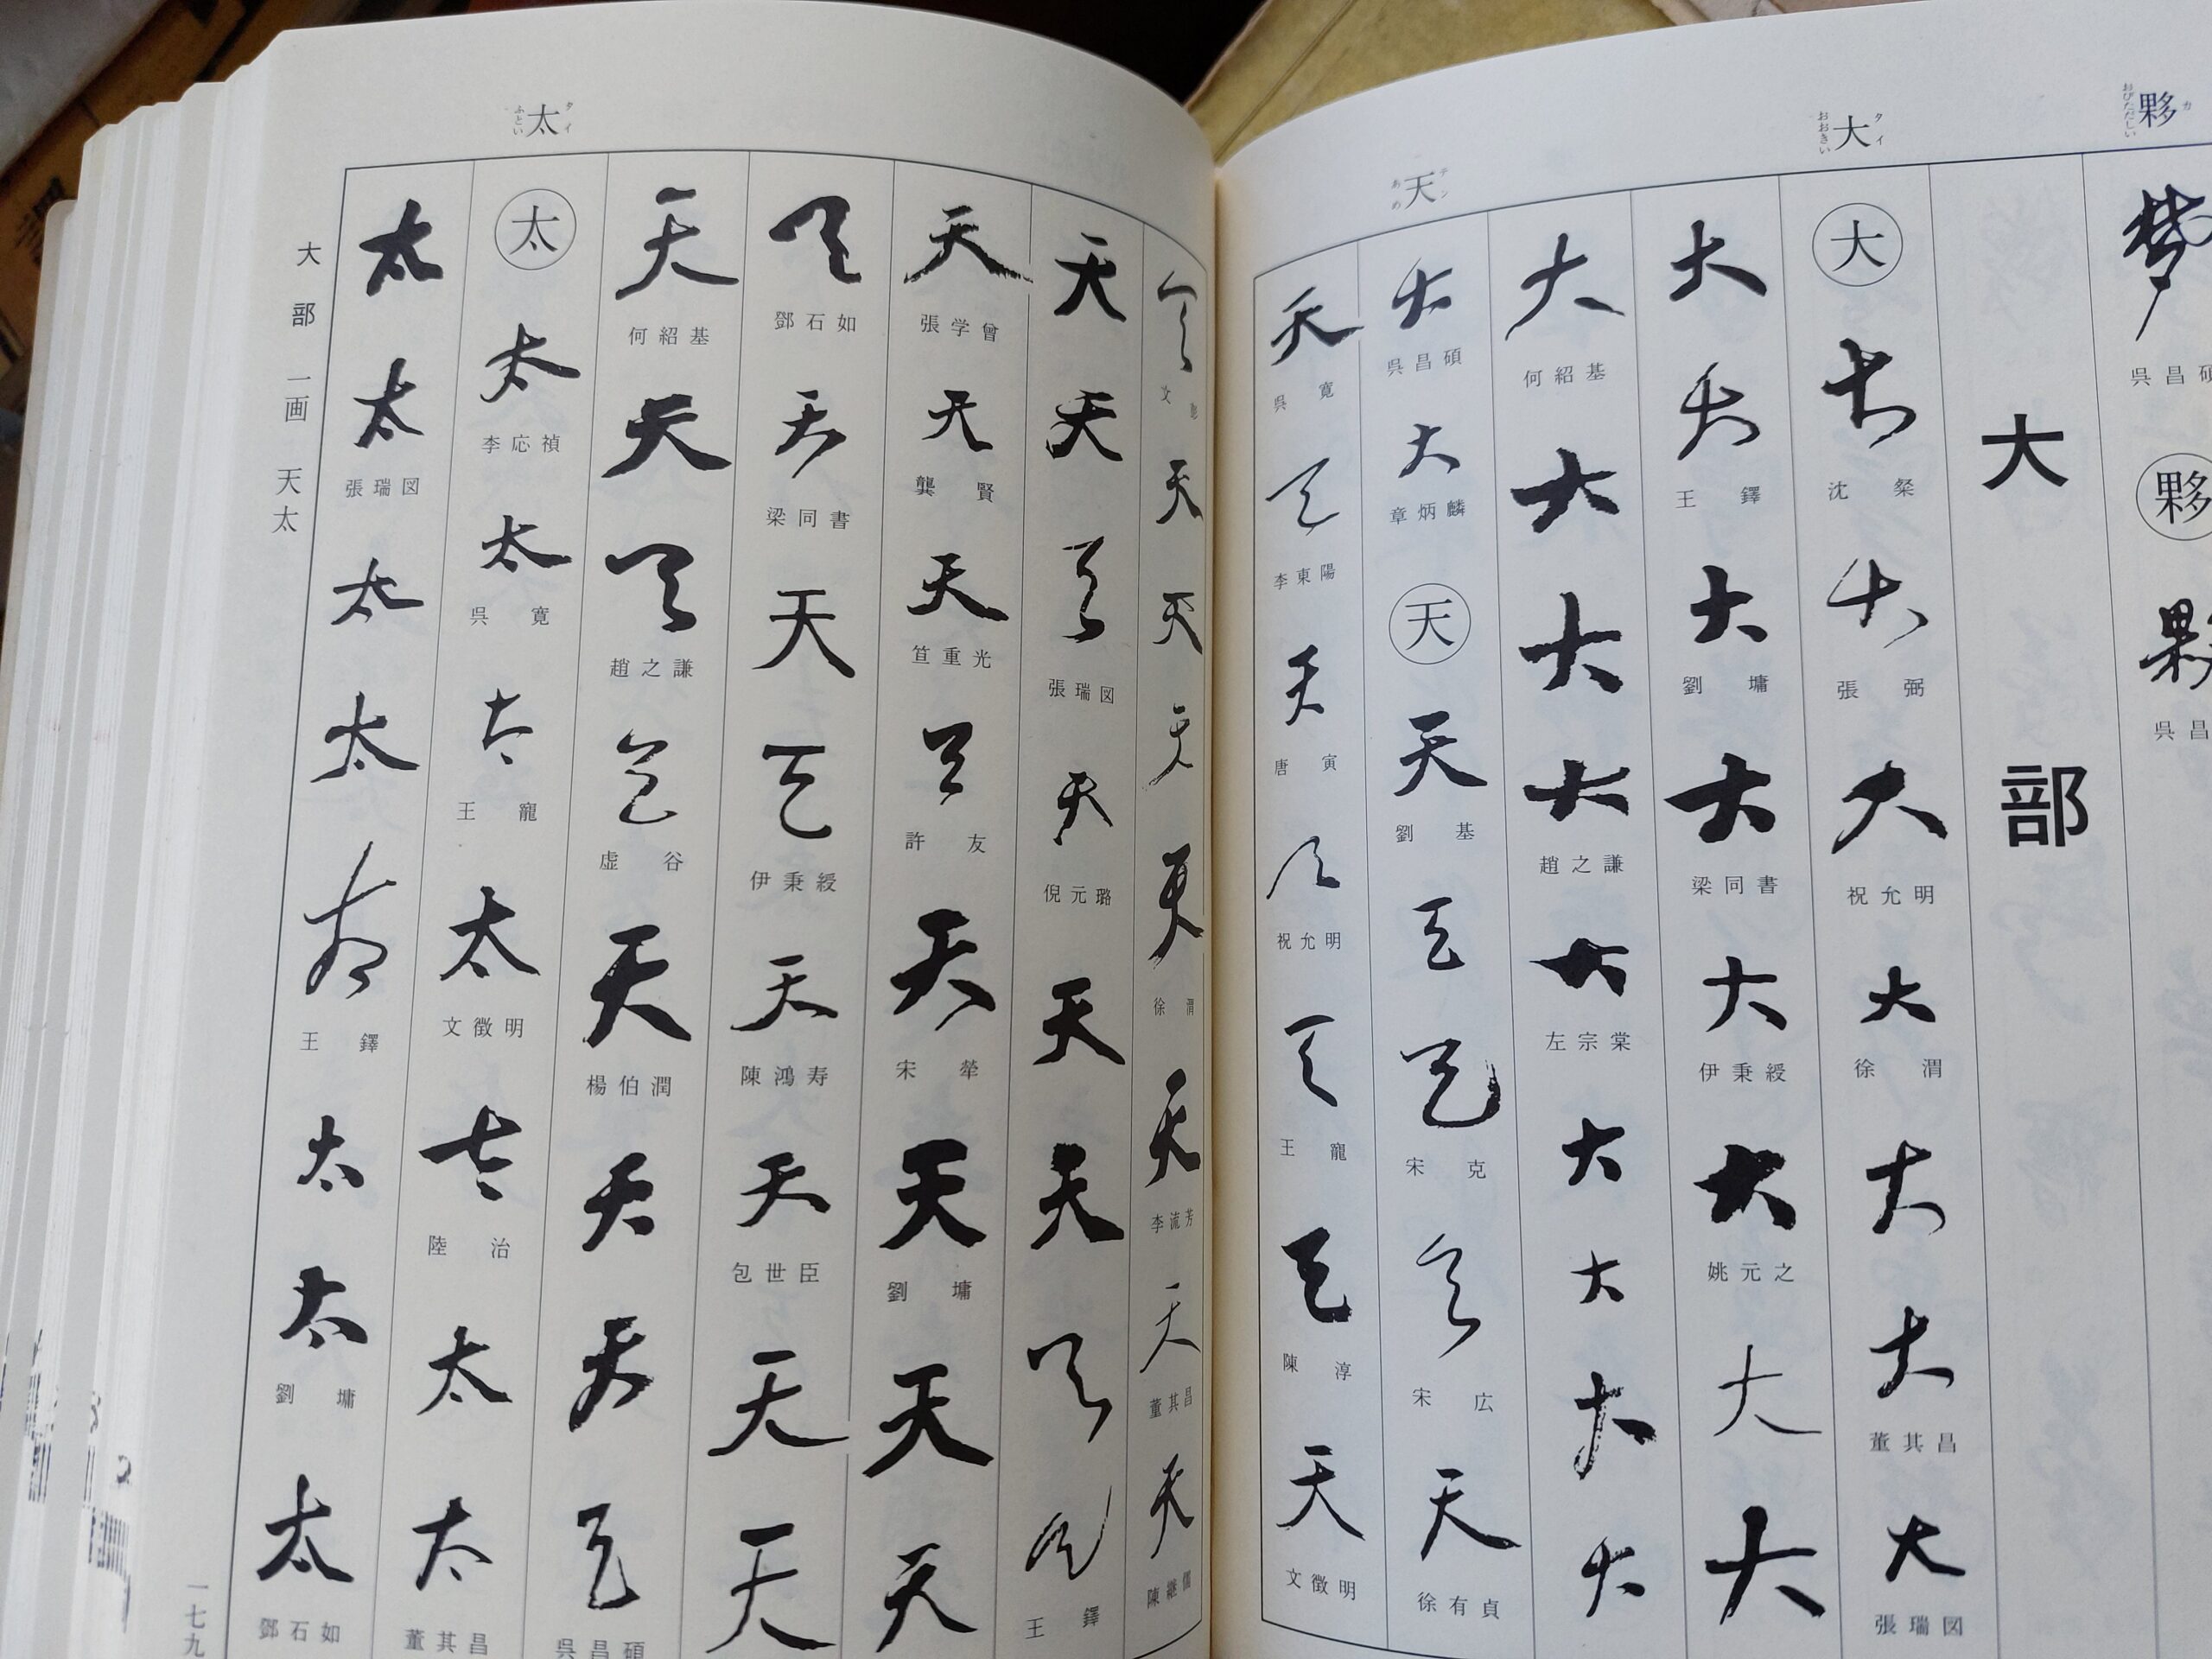 夥 カ おびただしい
大 タイ おおきい
天 テン あめ
吳昌碩 夥 夥 吳昌
大部
大 大 沈粲 大 張弼 大 祝允明 大 徐渭 大 大 董其昌 大 張瑞図
大 大 王鐸 大 劉墉 大 梁同書 大 伊秉綬 大 姚元之 大 大
大 何紹基 大 大 大 趙之謙 大 左宗棠 大 大 大 大
大 吳昌碩 大 章炳麟 天 天 劉基 天 天 宋克 天 宋広 天 徐有貞
天 吳寛 天 李東陽 天 唐寅 天 祝允明 天 王寵 天 陳淳 天 文徴明
太 タイ ふとい
天 文 天 天 天 天 徐渭 天 李流芳 天 董其昌 天 陳継儒
天 天 天 張瑞図 天 倪元璐 天 天 天 天 王鐸
天 張学曾 天 龔賢 天 笪重光 天 許友 天 宋犖 天 劉墉 天 天
天 鄧石如 天 梁同書 天 天 伊秉綬 天 陳鴻寿 天 包世臣 天 天
天 何紹基 天 天 趙之謙 天 虚谷 天 楊伯潤 天 天 天 吳昌碩
太 太 李応禎 太 吳寛 太 王寵 太 文徴明 太 陸治 太 太 董其昌
太 太 張瑞図 太 太 太 王鐸 太 太 劉墉 太 鄧石如
大部 一画 天太
一七九